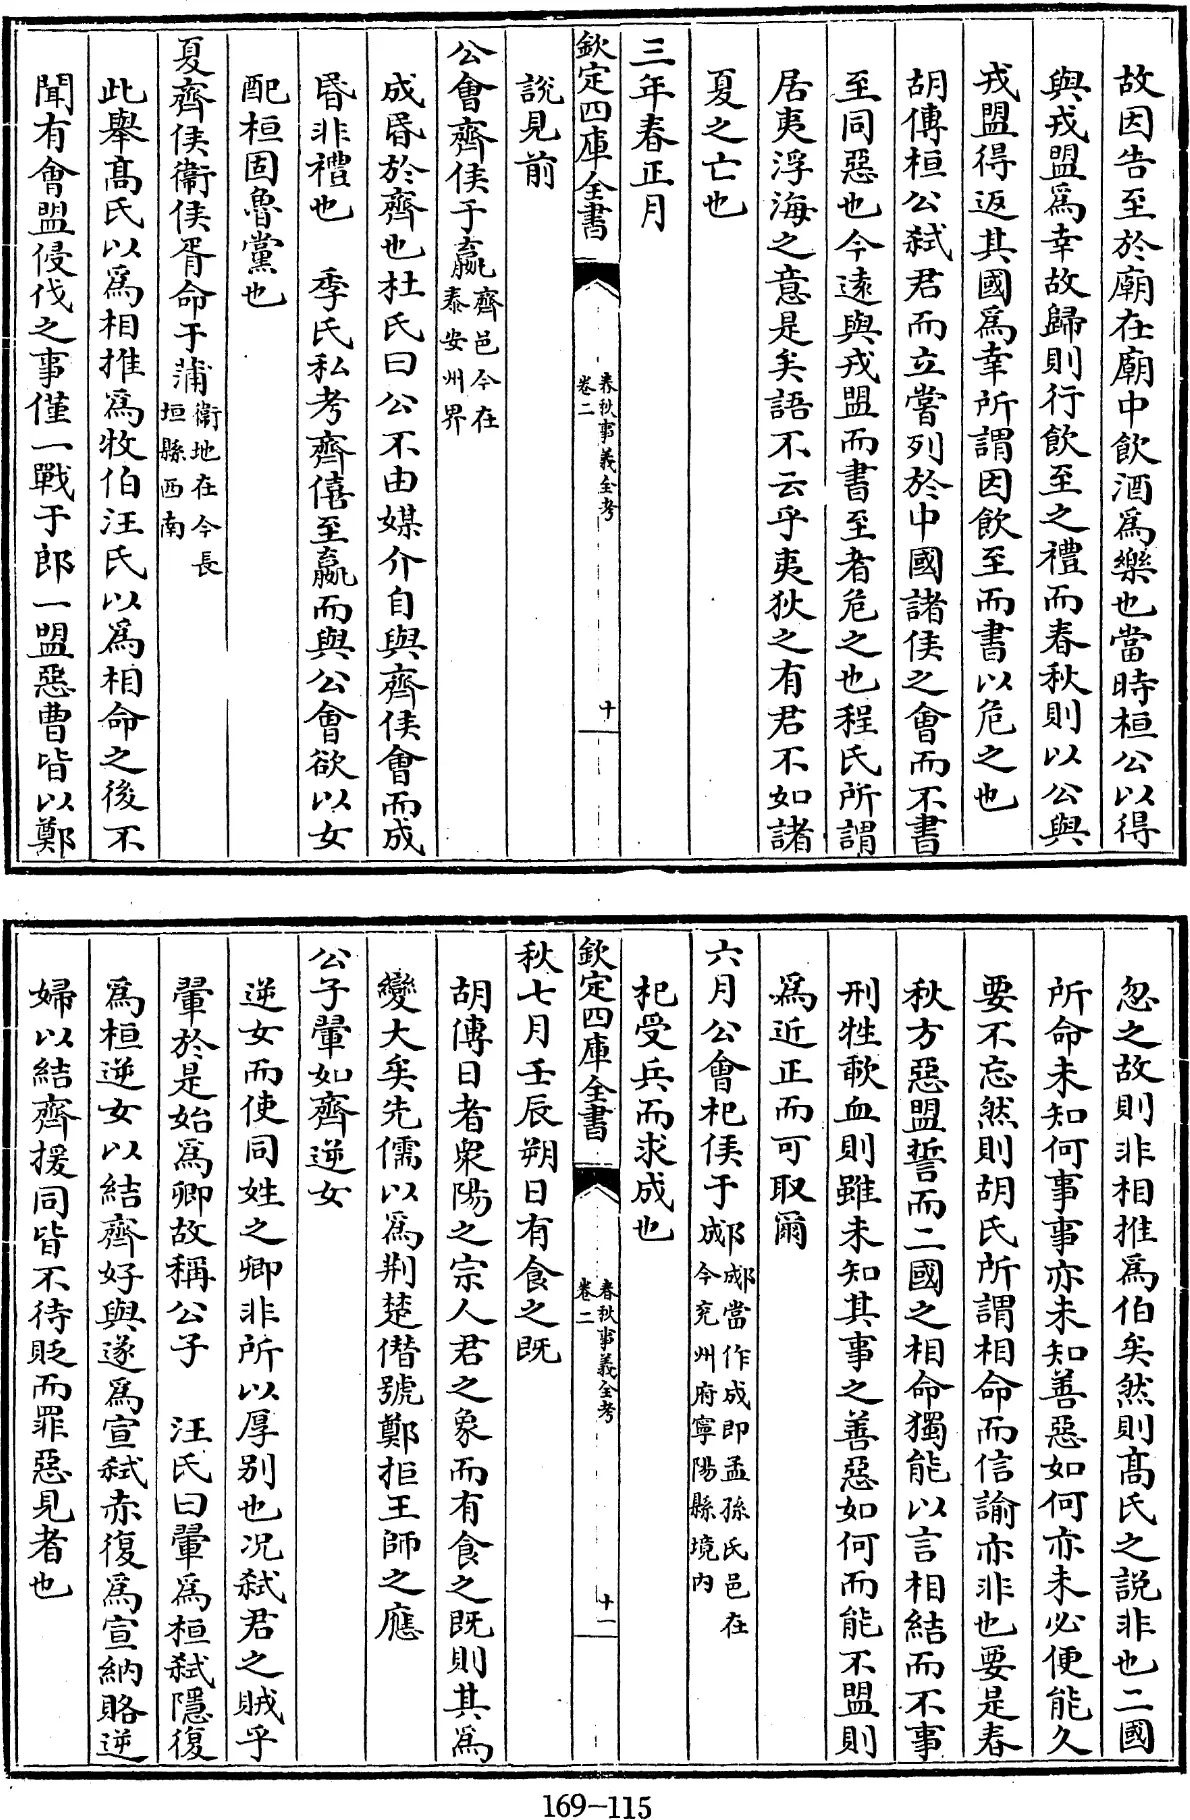 故因告至於廟在廟中飲酒爲樂也當時桓公以得
與戎盟爲幸故歸則行飲至之禮而春秋則以公與
戎盟得返其國爲幸所謂因飲至而書以危之也
胡傳桓公弑君而立嘗列於中國諸侯之會而不書
至同惡也今遠與戎盟而書至者危之也程氏所謂
居夷浮海之意是矣語不云乎夷狄之有君不如諸
夏之亡也
三年春正月
欽定四庫全書
春秋事義全考
卷二
十
說見前
公會齊侯于嬴齊邑今在
泰安州界
成昏於齊也杜氏曰公不由媒介自與齊侯會而成
昏非禮也 季氏私考齊僖至嬴而與公會欲以女
配桓固魯黨也
夏齊侯衛侯胥命于蒲衛地在今長
垣縣西南
此舉高氏以爲相推爲牧伯汪氏以爲相命之後不
聞有會盟侵伐之事僅一戰于郎一盟惡曹皆以鄭
忽之故則非相推爲伯矣然則高氏之說非也二國
所命未知何事事亦未知善惡如何亦未必便能久
要不忘然則胡氏所謂相命而信諭亦非也要是春
秋方惡盟誓而二國之相命獨能以言相結而不事
刑牲歃血則雖未知其事之善惡如何而能不盟則
爲近正而可取爾
六月公會杞侯于郕郕當作成即孟孫氏邑在
今兖州府寧陽縣境内
杞受兵而求成也
欽定四庫全書
春秋事義全考
卷二
十一
秋七月壬辰朔日有食之既
胡傳日者衆陽之宗人君之象而有食之既則其爲
變大矣先儒以爲荆楚僭號鄭拒王師之應
公子翬如齊逆女
逆女而使同姓之卿非所以厚别也况弑君之賊乎
翬於是始爲卿故稱公子 汪氏曰翬爲桓弑隱復
爲桓逆女以結齊好與遂爲宣弑赤復爲宣納賂逆
婦以結齊援同皆不待貶而罪惡見者也
169-115